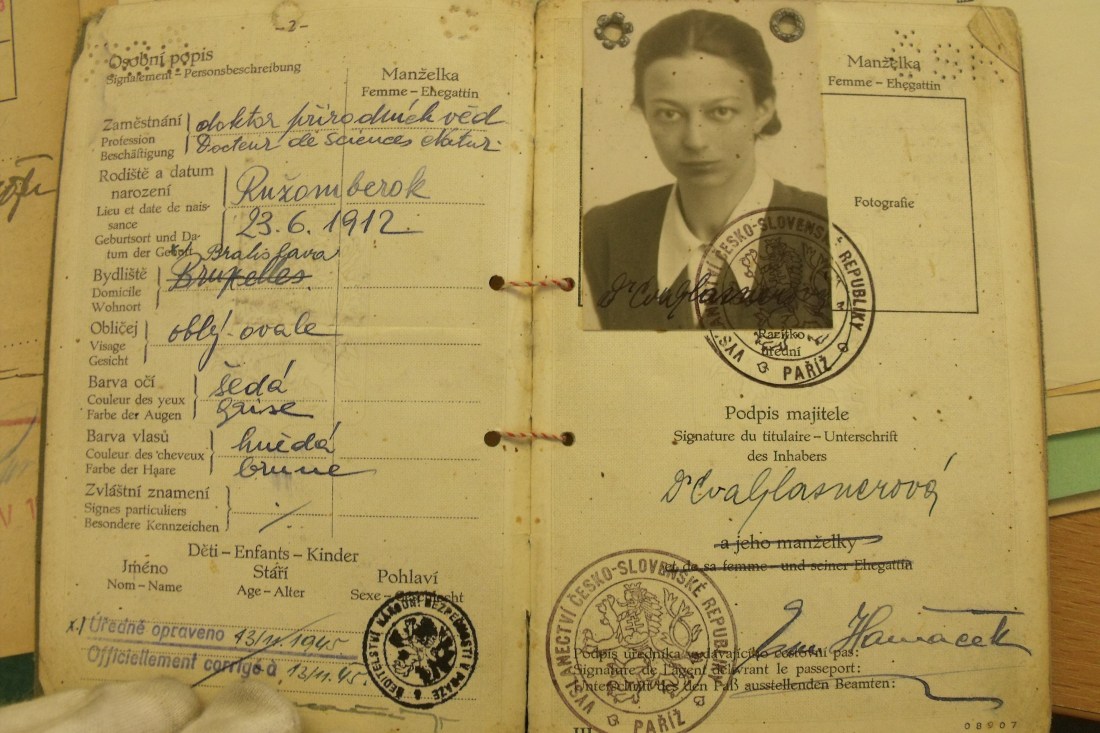 - 2 -
Osobní popis
Signalement - Personsbeschreibung
Manželka
Femme - Ehegattin
Zaměstnání
Profession
Beschäftigung
doktor přírodních věd
Docteur de Sciences Natur.
Rodiště a datum
narození
Lieu et date de nais-
sance
Geburtsort und Da-
tum der Geburt
Ružomberok
23.6.1912.
x) Bratislava
Bydliště
Domicile
Wohnort
Bruxelles.
Obličej
Visage
Gesicht
oblý - ovale
Barva očí
Couleur des yeux
Farbe der Augen
šedá
grise
Barva vlasů
Couleur des cheveux
Farbe der Haare
hnědá
brune
Zvláštní znamení
Signes particuliers
Besondere Kennzeichen
Děti - Enfants - Kinder
Jméno
Nom - Name
Stáří
Age - Alter
Pohlaví
Sexe - Geschlecht
x.) Úředně opraveno 13/11/1945
Officiellement corrigé à 13.11.45
ŘEDITELSTVÍ NÁRODNÍ BEZPEČNOSTI V PRAZE 6
Manželka
Femme - Ehegattin
Fotografie
Dr Eva Glasnerová
VYSLANECTVÍ ČESKO-SLOVENSKÉ REPUBLIKY
PAŘÍŽ
Razítko
úřední
Podpis majitele
Signature du titulaire - Unterschrift
des Inhabers
Dr Eva Glasnerová
a jeho manželky
et de sa femme - und seiner Ehegattin
VYSLANECTVÍ ČESKO-SLOVENSKÉ REPUBLIKY
PAŘÍŽ
Podpis úředníka vydávajícího cestovní pas:
Signature de l'agent délivrant le passeport:
Unterschrift des den Paß ausstellenden Beamten:
III
08907